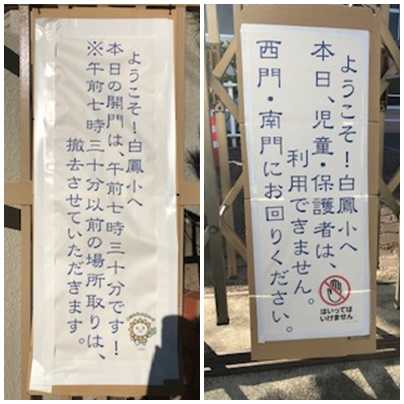 ようこそ！白鳳小へ
本日の開門は、午前七時三十分です！
※午前七時三十分以前の場所取りは、
撤去させていただきます。
ようこそ！白鳳小へ
本日、児童・保護者は、
利用できません。
西門・南門にお回りください。
はいっては
いけません